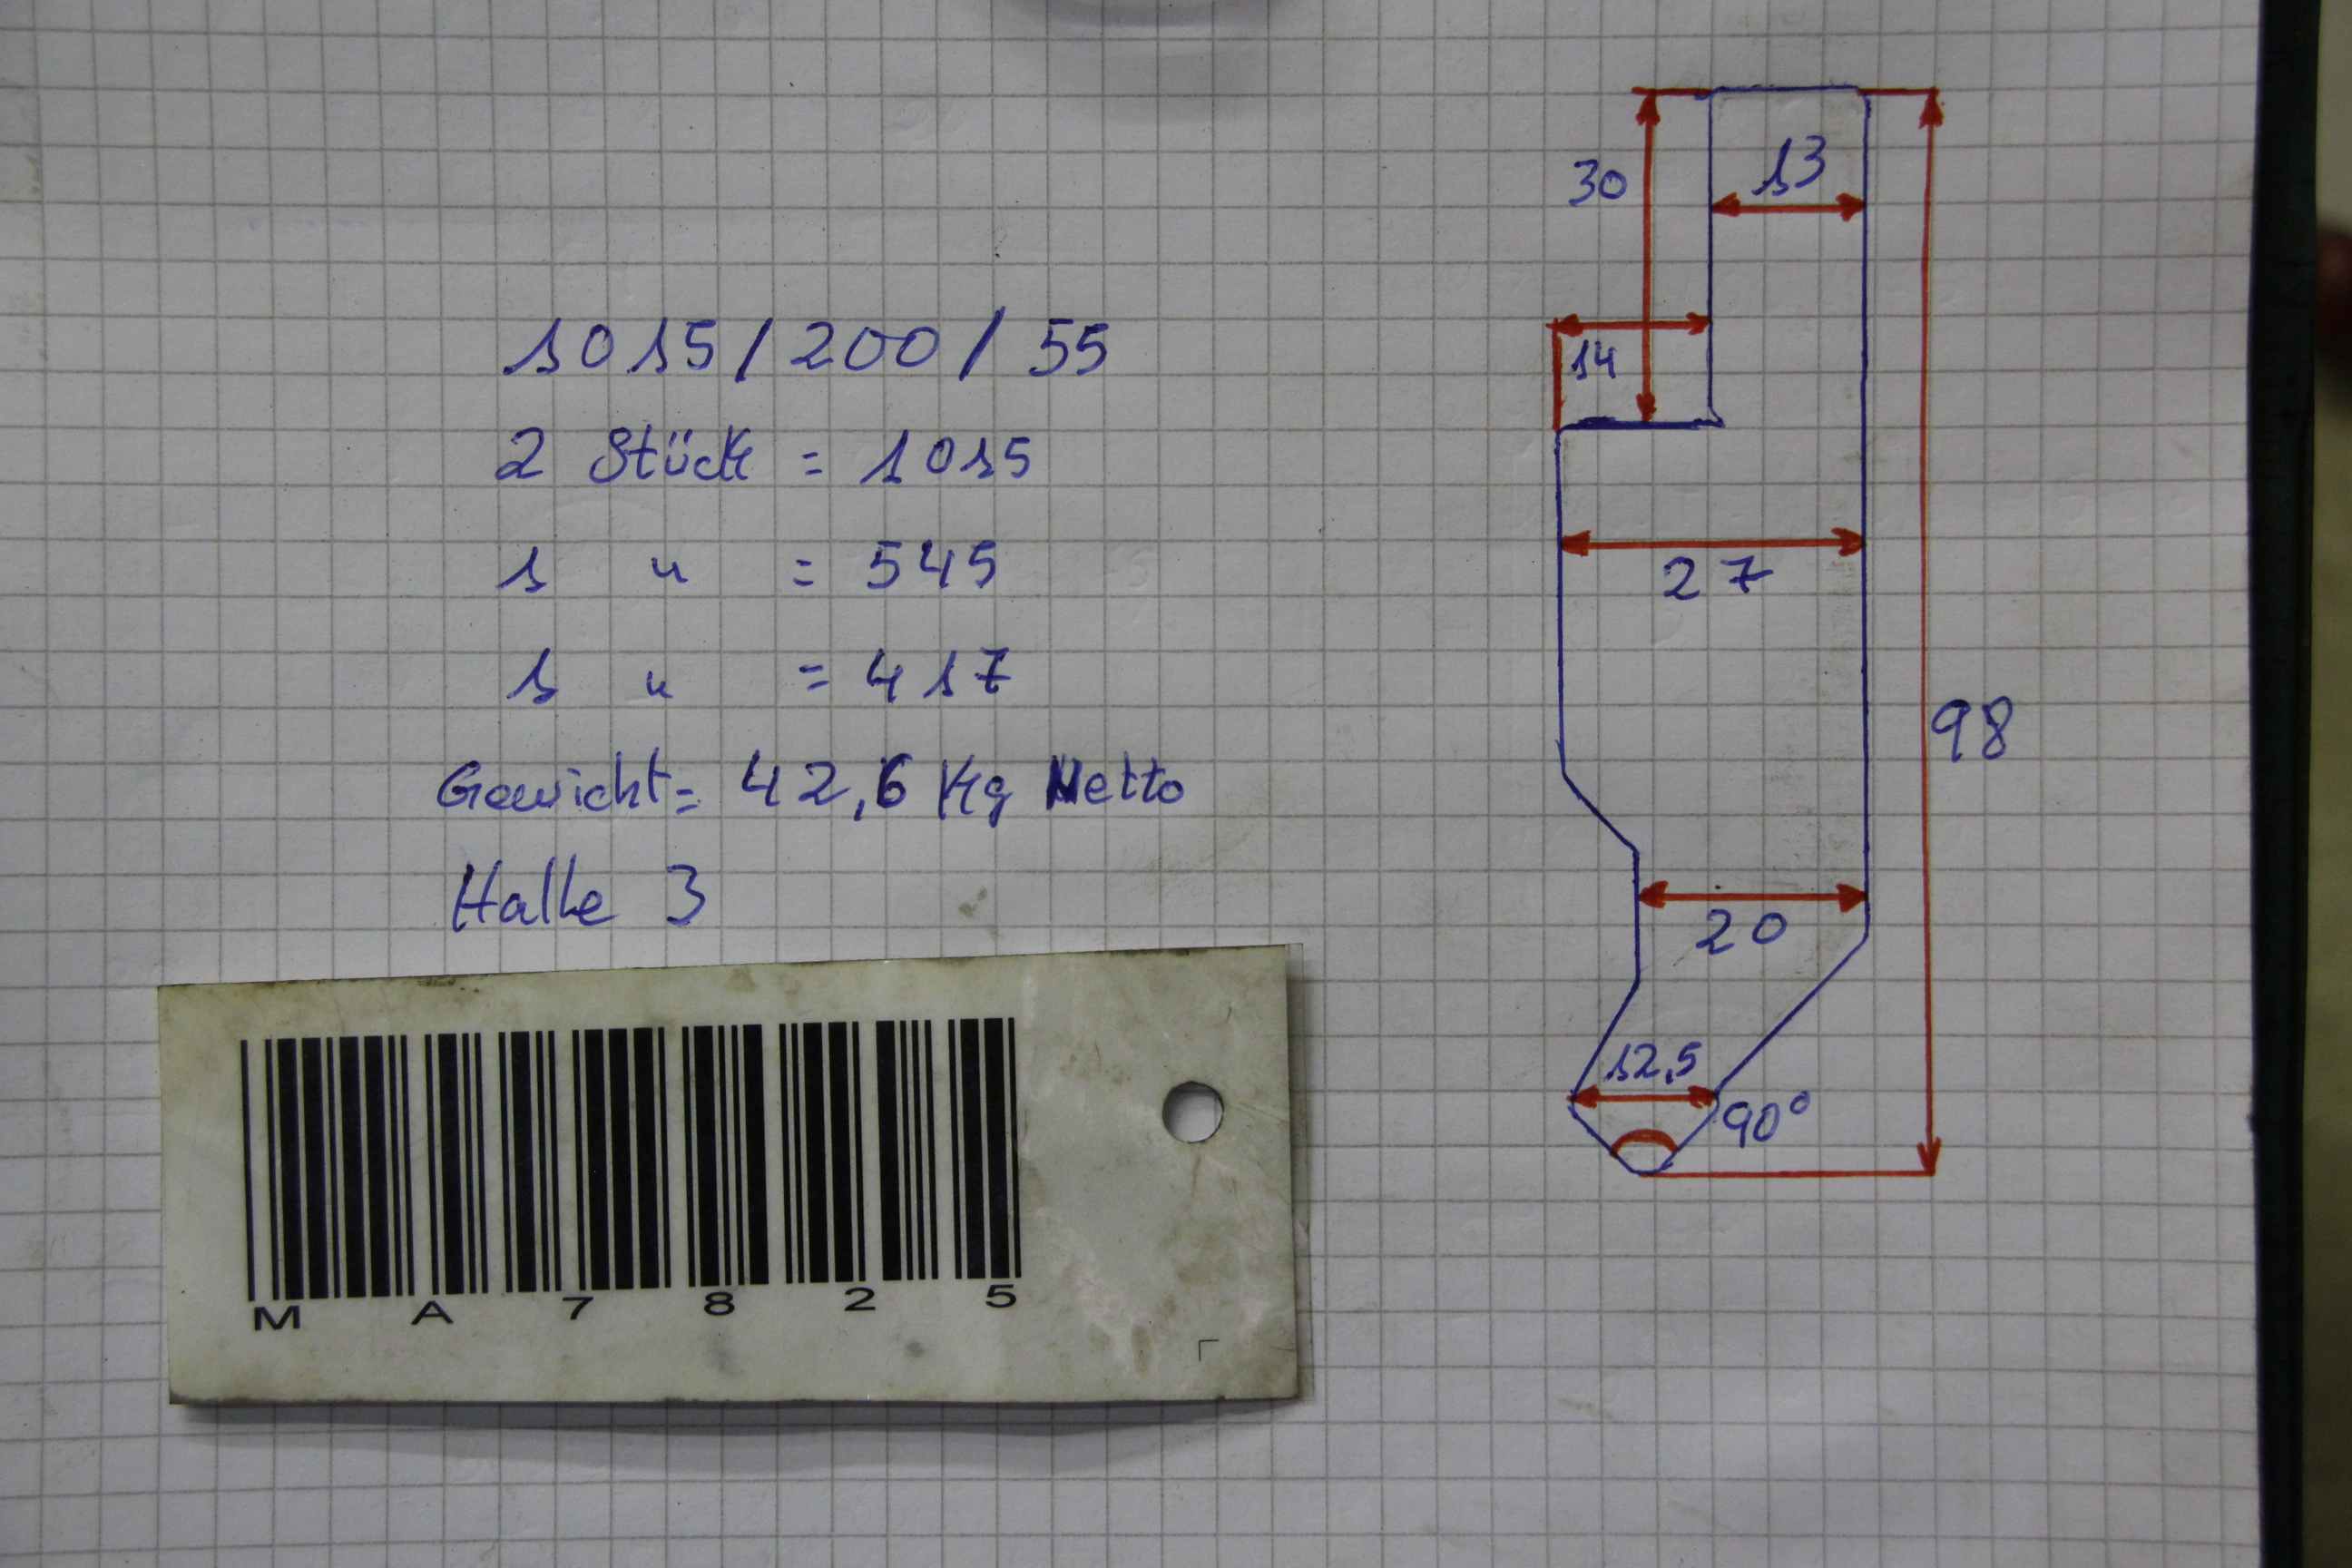 1015/200/55
2 Stück = 1015
1 " = 545
1 " = 417
Gewicht= 42,6 Kg Netto
Halle 3
MA7825
30
13
14
27
98
20
12,5
90°